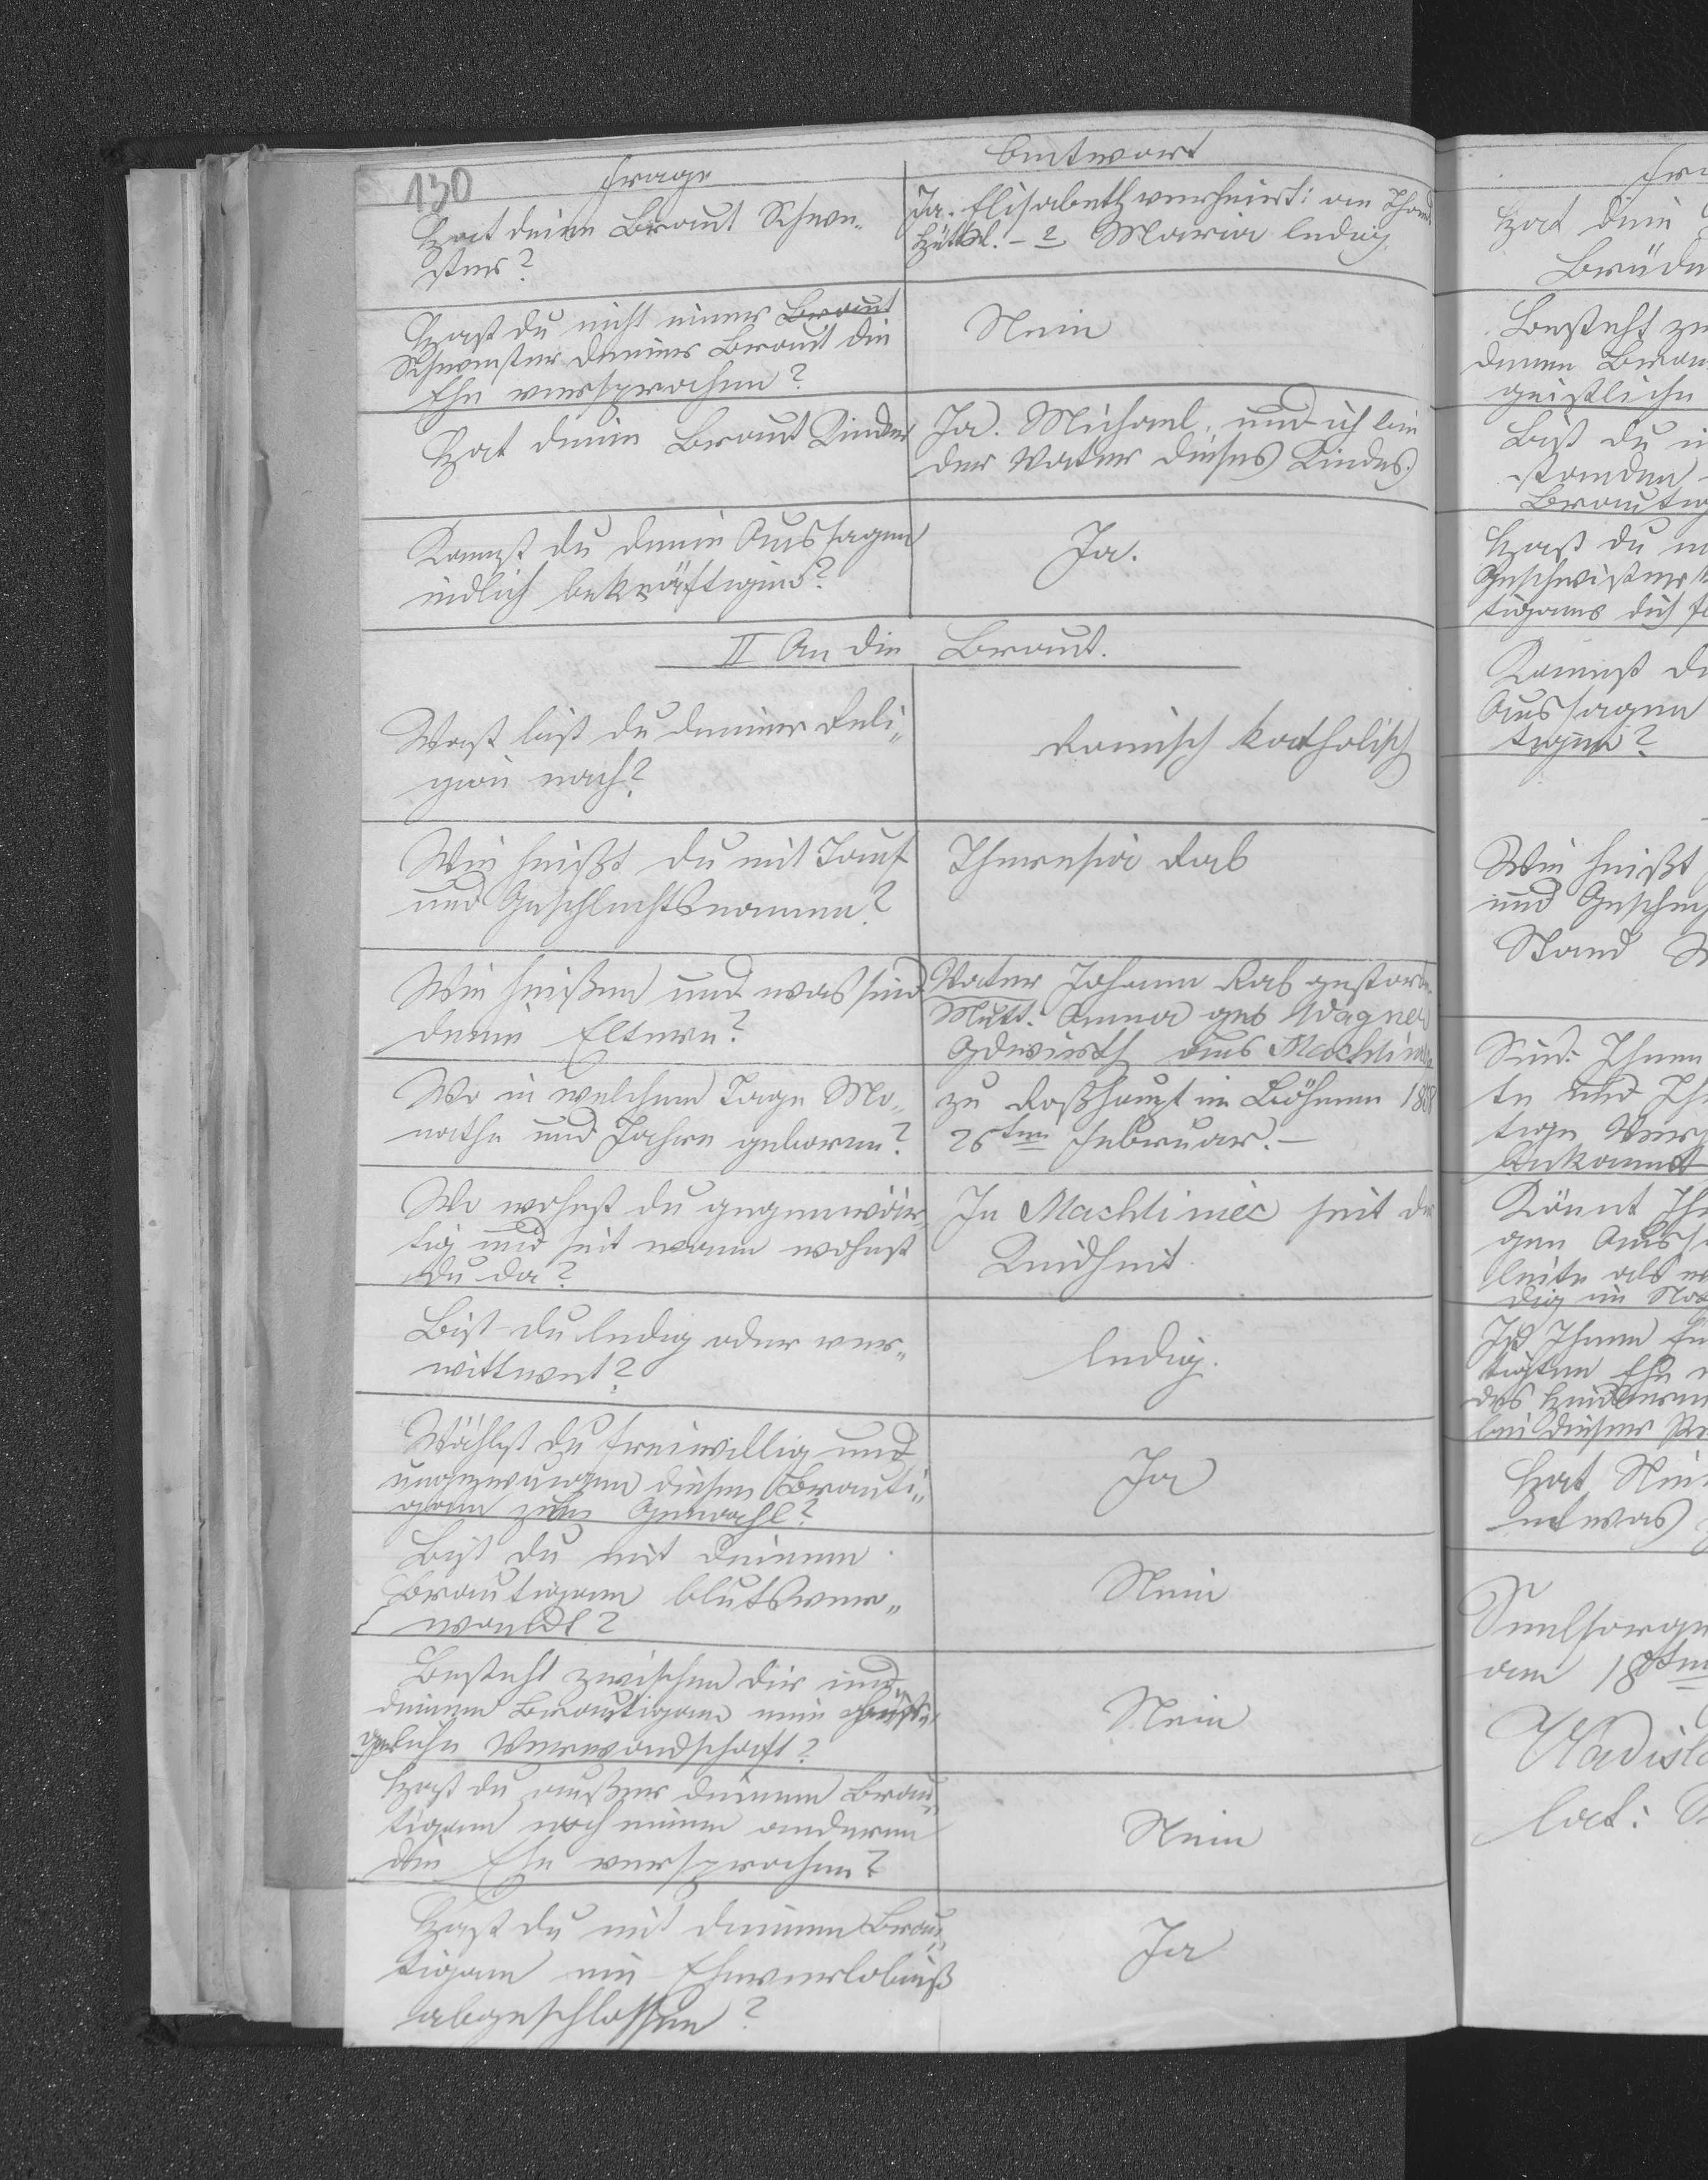 130
Frage
Antwort
Hat deine Braut Schwe„
ster?
Ja. Elisabeth verheirt: an
2 Maria ledig
Hast du nicht einer Braut
Schwester deiner Braut die
Ehe versprochen?
Nein
Hat deine Braut Kinder
Ja. Michael, und ich bin
der Vater dieses Kindes.
Kannst du deine Aussagen
eidlich bekräftigen?
Ja.
II An die Braut.
Was bist du deiner Reli„
gion nach?
Romisch katholisch
Wie heißt du mit Tauf
und Geschlechtsnamen?
Theresia Rab
Wie heißen und was sind
deine Eltern?
Vater Johann Rab gestorb
Mutt. Anna geb Wagner
Gdewirth aus Machlini
Wo in welchem Tage Mo„
nathe und Jahre geboren?
zu Roßhaupt in Böhmen
26ten Februar. –
Wo wohnst du gegenwär„
tig und seit wann wohnst
du da?
In Machliniec seit der
Kindheit.
Bist du ledig oder ver„
wittwet?
ledig.
Wählst du freiwillig und
ungezwungen diesen Brauti„
gam zum Gemahl?
Ja
Bist du mit deinem
Brautigam blutsver„
wandt?
Nein
Besteht zwischen dir und
deinem Brautigam eine
Verwandschaft?
Nein
Hast du außer deinem Brau„
tigam noch einem anderen
die Ehe versprochen?
Nein
Hast du mit deinem Brau„
tigam ein Eheverlobniß
abgeschlossen?
Ja
Hat dein
Brüde
Besteht zw
deinem Brau
geistliche
Bist du
standen
Brautig
Hast du
Geschwister
tigams dich
Kannst du
Aussagen
tigen?
Wie heißt
und Gesch
Stand
Sind Ihnen
te und Ih
tige Ver
bekannt
Könnt Ih
gen Auss
leite als
dig im
Ist Ihnen
tigten Ehe
das
bei dieser
Hat Nie
etwas
Seelsorge
am 18ten
Wladisla
lat: